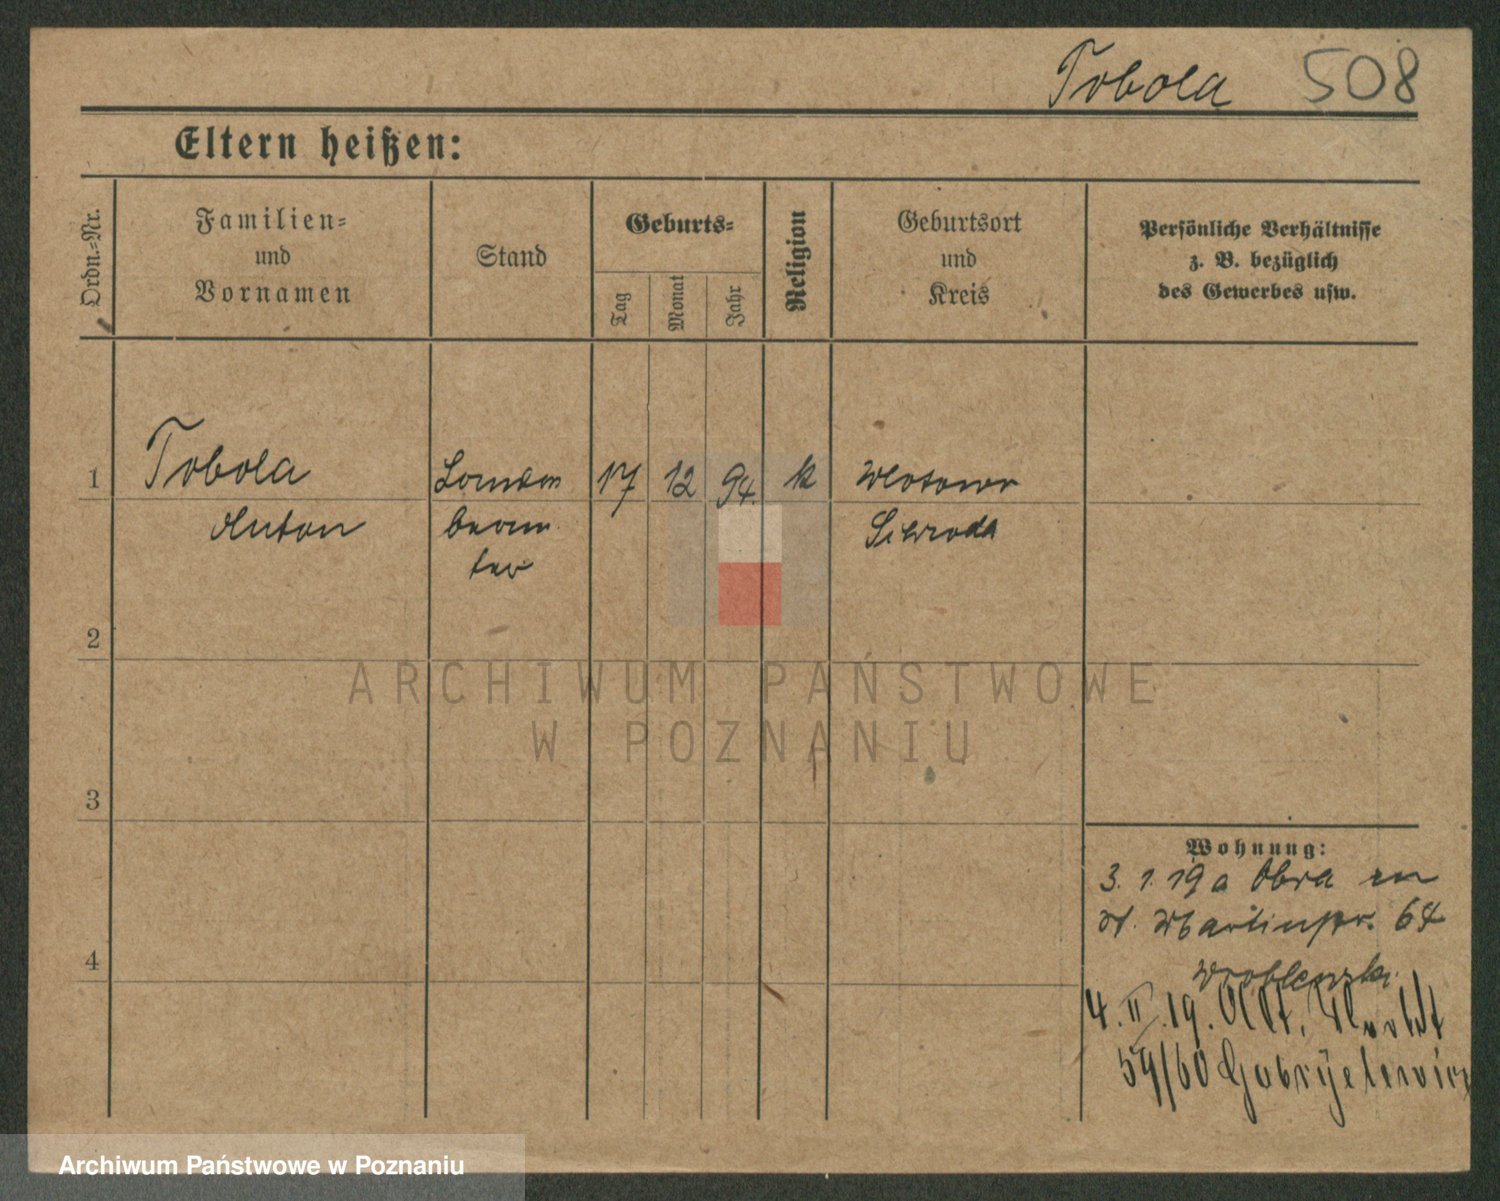 Tobola 508
Eltern heißen:
Ordn.=Nr.
Familien=
und
Vornamen
Stand
Geburts=
Tag
Monat
Jahr
Religion
Geburtsort
und
Kreis
Persönliche Verhältnisse
z. B. bezüglich
des Gewerbes usw.
1 Tobola 17 12 94. k
Anton beam
ter
2
3
4
Wohnung:
3. 1. 19 a Obra
St. Martinstr. 64
4. II. 19. Alt.
59/60
ARCHIWUM PAŃSTWOWE
W POZNANIU
Archiwum Państwowe w Poznaniu